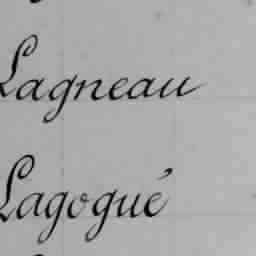 Lagneau
Lagogué